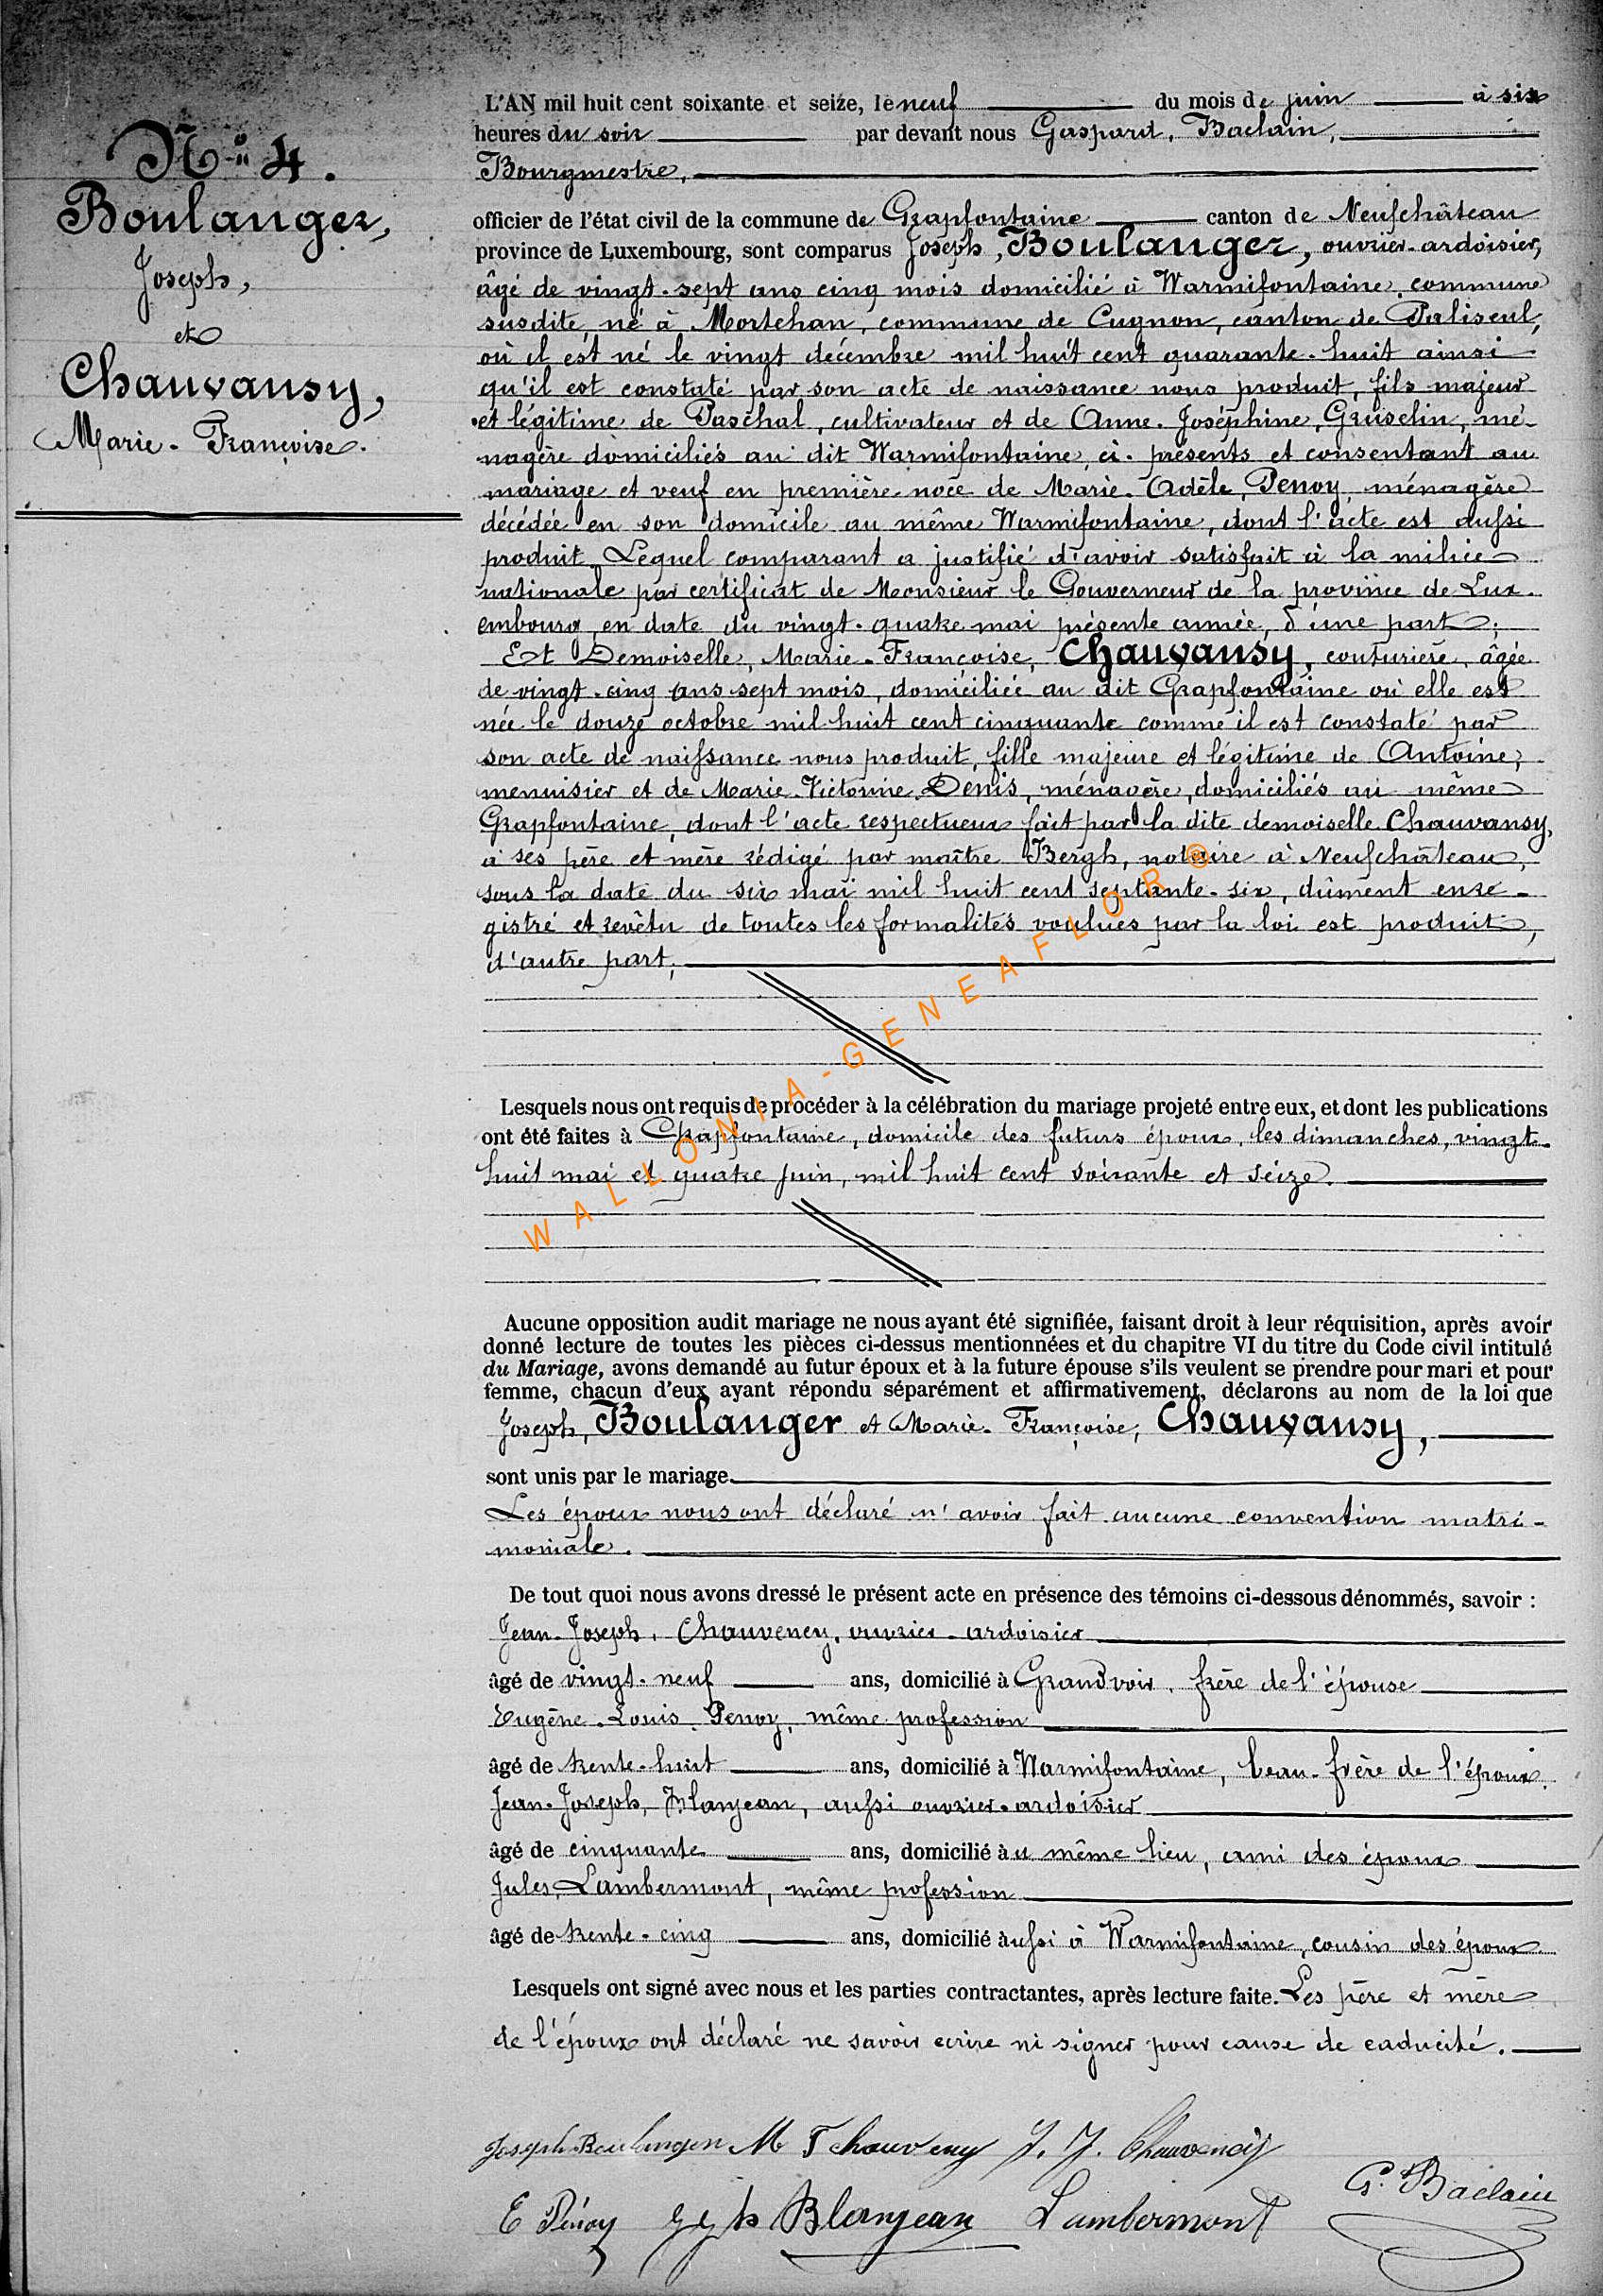 N° 4.
Boulanger,
Joseph,
et
Chauvansy,
Marie-Françoise.
L'AN mil huit cent soixante et seize, le neuf du mois de juin à six
heures du soir par devant nous Gaspard, Baclain,
Bourgmestre,
officier de l'état civil de la commune de Grapfontaine canton de Neufchâteau
province de Luxembourg, sont comparus Joseph, Boulanger, ouvrier-ardoisier,
âgé de vingt-sept ans cinq mois domicilié à Warmifontaine, commune
susdite, né à Mortehan, commune de Cugnon, canton de Paliseul,
où il est né le vingt décembre mil huit cent quarante-huit ainsi
qu'il est constaté par son acte de naissance nous produit, fils majeur
et légitime de Paschal, cultivateur et de Anne-Joséphine, Gruselin, mé-
nagère domiciliés au dit Warmifontaine, ci-présents et consentant au
mariage et veuf en première noce de Marie-Adèle, Penoy, ménagère
décédée en son domicile au même Warmifontaine, dont l'acte est aussi
produit. Lequel comparant a justifié d'avoir satisfait à la milice
nationale par certificat de Monsieur le Gouverneur de la province de Lux-
embourg, en date du vingt-quatre mai présente année, d'une part;
Et Demoiselle, Marie-Françoise, Chauvansy, couturière, âgée
de vingt-cinq ans sept mois, domiciliée au dit Grapfontaine où elle est
née le douze octobre mil huit cent cinquante comme il est constaté par
son acte de naissance nous produit, fille majeure et légitime de Antoine,
menuisier et de Marie-Victorine, Denis, ménagère, domiciliés au même
Grapfontaine, dont l'acte respectueux fait par la dite demoiselle Chauvansy,
à ses père et mère rédigé par maître Bergh, notaire à Neufchâteau,
sous la date du six mai mil huit cent septante-six, dûment enre-
gistré et revêtu de toutes les formalités voulues par la loi est produit,
d'autre part;
Lesquels nous ont requis de procéder à la célébration du mariage projeté entre eux, et dont les publications
ont été faites à Grapfontaine, domicile des futurs époux, les dimanches, vingt-
huit mai et quatre juin, mil huit cent soixante et seize.
WALLONIA-GENEAFLOR®
Aucune opposition audit mariage ne nous ayant été signifiée, faisant droit à leur réquisition, après avoir
donné lecture de toutes les pièces ci-dessus mentionnées et du chapitre VI du titre du Code civil intitulé
du Mariage, avons demandé au futur époux et à la future épouse s'ils veulent se prendre pour mari et pour
femme, chacun d'eux ayant répondu séparément et affirmativement, déclarons au nom de la loi que
Joseph, Boulanger et Marie-Françoise, Chauvansy,
sont unis par le mariage.
Les époux nous ont déclaré n'avoir fait aucune convention matri-
moniale.
De tout quoi nous avons dressé le présent acte en présence des témoins ci-dessous dénommés, savoir :
Jean-Joseph, Chauveney, ouvrier-ardoisier
âgé de vingt-neuf ans, domicilié à Grandvoir, frère de l'épouse
Eugène-Louis, Penoy, même profession
âgé de trente-huit ans, domicilié à Warmifontaine, beau-frère de l'époux.
Jean-Joseph, Blanjean, aussi ouvrier-ardoisier
âgé de cinquante ans, domicilié au même lieu, ami des époux
Jules, Lambermont, même profession
âgé de trente-cinq ans, domicilié aussi à Warmifontaine, cousin des époux.
Lesquels ont signé avec nous et les parties contractantes, après lecture faite. Les père et mère
de l'époux ont déclaré ne savoir ecrire ni signer pour cause de caducité.
Joseph Boulanger M F chauveny J. J. Chauvency
G. Baclain
E Pénoy Blanjean Lambermont